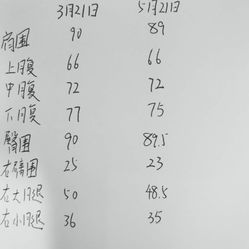 3月21日 5月21日
肩围 90 89
上腹 66 66
中腹 72 72
下腹 77 75
臀围 90 89.5
右臂围 25 23
右大腿 50 48.5
右小腿 36 35